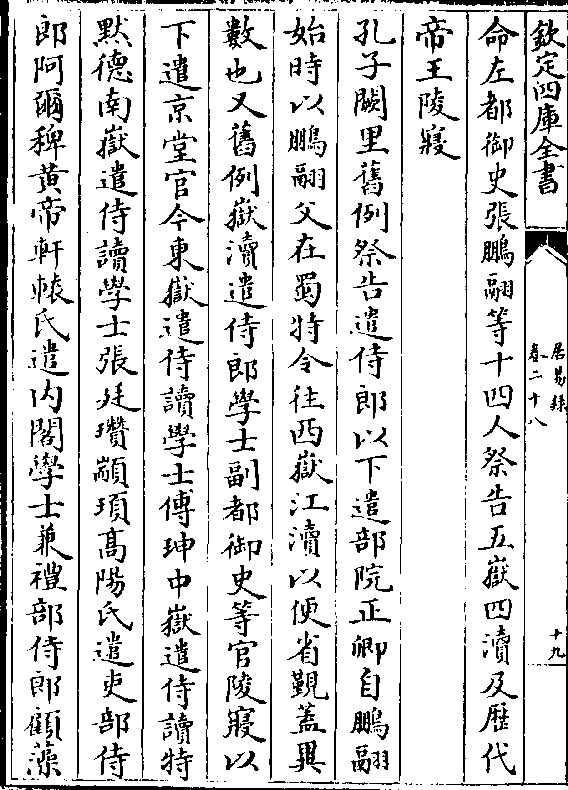 欽定四庫全書
居易錄
卷二十八
十九
命左都御史張鵬翮等十四人祭告五嶽四瀆及歷代
帝王陵寢
孔子闕里舊例祭告遣侍郎以下遣部院正卿自鵬翮
始時以鵬翮父在蜀特令往西嶽江瀆以便省覲蓋異
數也又舊例嶽瀆遣侍郎學士副都御史等官陵寢以
下遣京堂官今東嶽遣侍讀學士傅珅中嶽遣侍讀特
默德南嶽遣侍讀學士張廷瓚顓頊髙陽氏遣吏部侍
郎阿爾稗黄帝軒轅氏遣内閣學士兼禮部侍郎顧藻